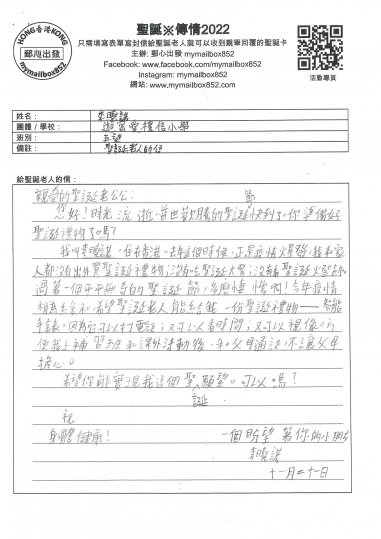 HONG KONG 香港
郵心出發
mymailbox852
聖誕※傳情2022
只需填寫表單寫封信給聖誕老人就可以收到親筆回覆的聖誕卡
主辦: 郵心出發 mymailbox852
Facebook: www.facebook.com/mymailbox852
Instagram: mymailbox852
網站: www.mymailbox852.com
活動專頁
姓名:
團體 / 學校:
班別: 五望
備註: 聖誕老人的信
給聖誕老人的信:
親愛的聖誕老公公:
您好!時光流逝,普世歡騰的聖誕節快到了,你準備好
聖誕禮物了嗎?
我叫李 ,住在香港。去年這個時候,正是疫情爆發,我和家
人都沒有出外買聖誕禮物;沒有吃聖誕大餐;沒有看聖誕燈飾
過著一個平平無奇的聖誕節,多麼 啊!今年疫情
稍為緩和,希望聖誕老人能給我一份聖誕禮物——智能
手錶。因為它可以打電話;又可以看時間;又可以視像。方
便我上補習班和課外活動後,和父母通話,不讓父母
擔心。
希望你能實現我這個聖誕願望。可以嗎?
祝
身體健康!
一個盼望著你的小朋友
李
十一月二十一日